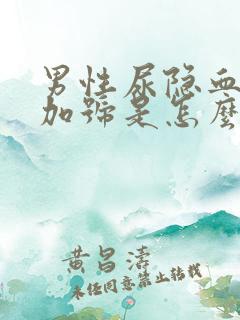 男性尿隐血
加號是怎麼
黄昌濤
未经同意禁止转载